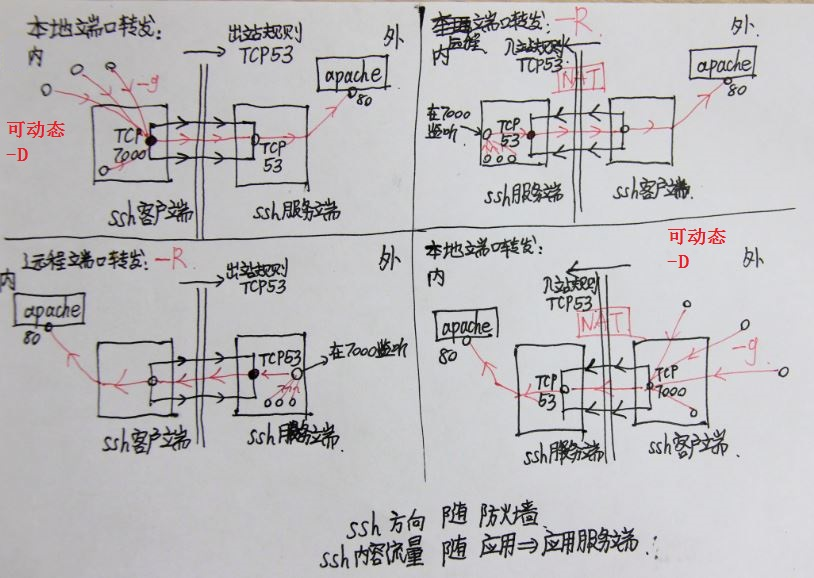 本地端口转发:
内
出站规则
TCP53
外
apache
80
-g
可动态
-D
TCP
7000
TCP
53
ssh客户端
ssh服务端
远程
端口转发: -R
内
入站规则
TCP53
NAT
外
apache
80
在7000
监听
TCP
53
ssh服务端
ssh客户端.
远程端口转发: -R
内
出站规则
TCP53
外
apache
80
TCP53
在7000监听
ssh客户端
ssh服务端.
本地端口转发:
内
可动态
-D
外
入站规则
TCP53
NAT
apache
80
-g
TCP
53
TCP
7000
ssh服务端
ssh客户端.
ssh 方向 随 防火墙
ssh内容流量 随 应用⇒应用服务端.